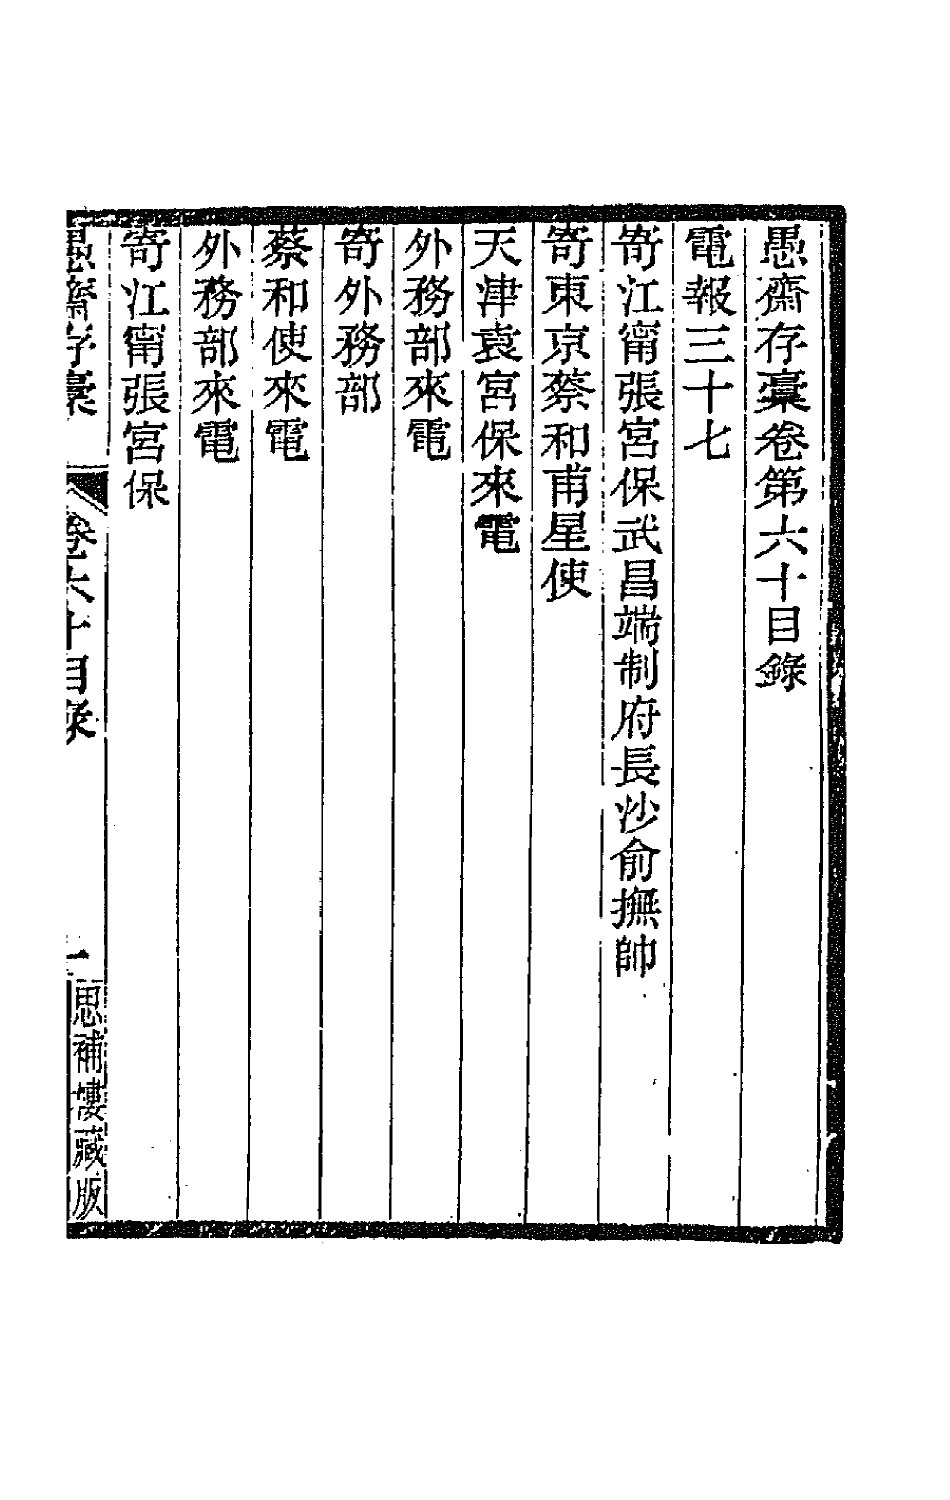 愚齋存稾卷第六十目錄
電報三十七
寄江甯張宮保武昌端制府長沙俞撫帥
寄東京蔡和甫星使
天津袁宮保來電
外務部來電
寄外務部
蔡和使來電
外務部來電
寄江甯張宮保
愚齋存稾 卷六十目錄 一 思補樓藏版